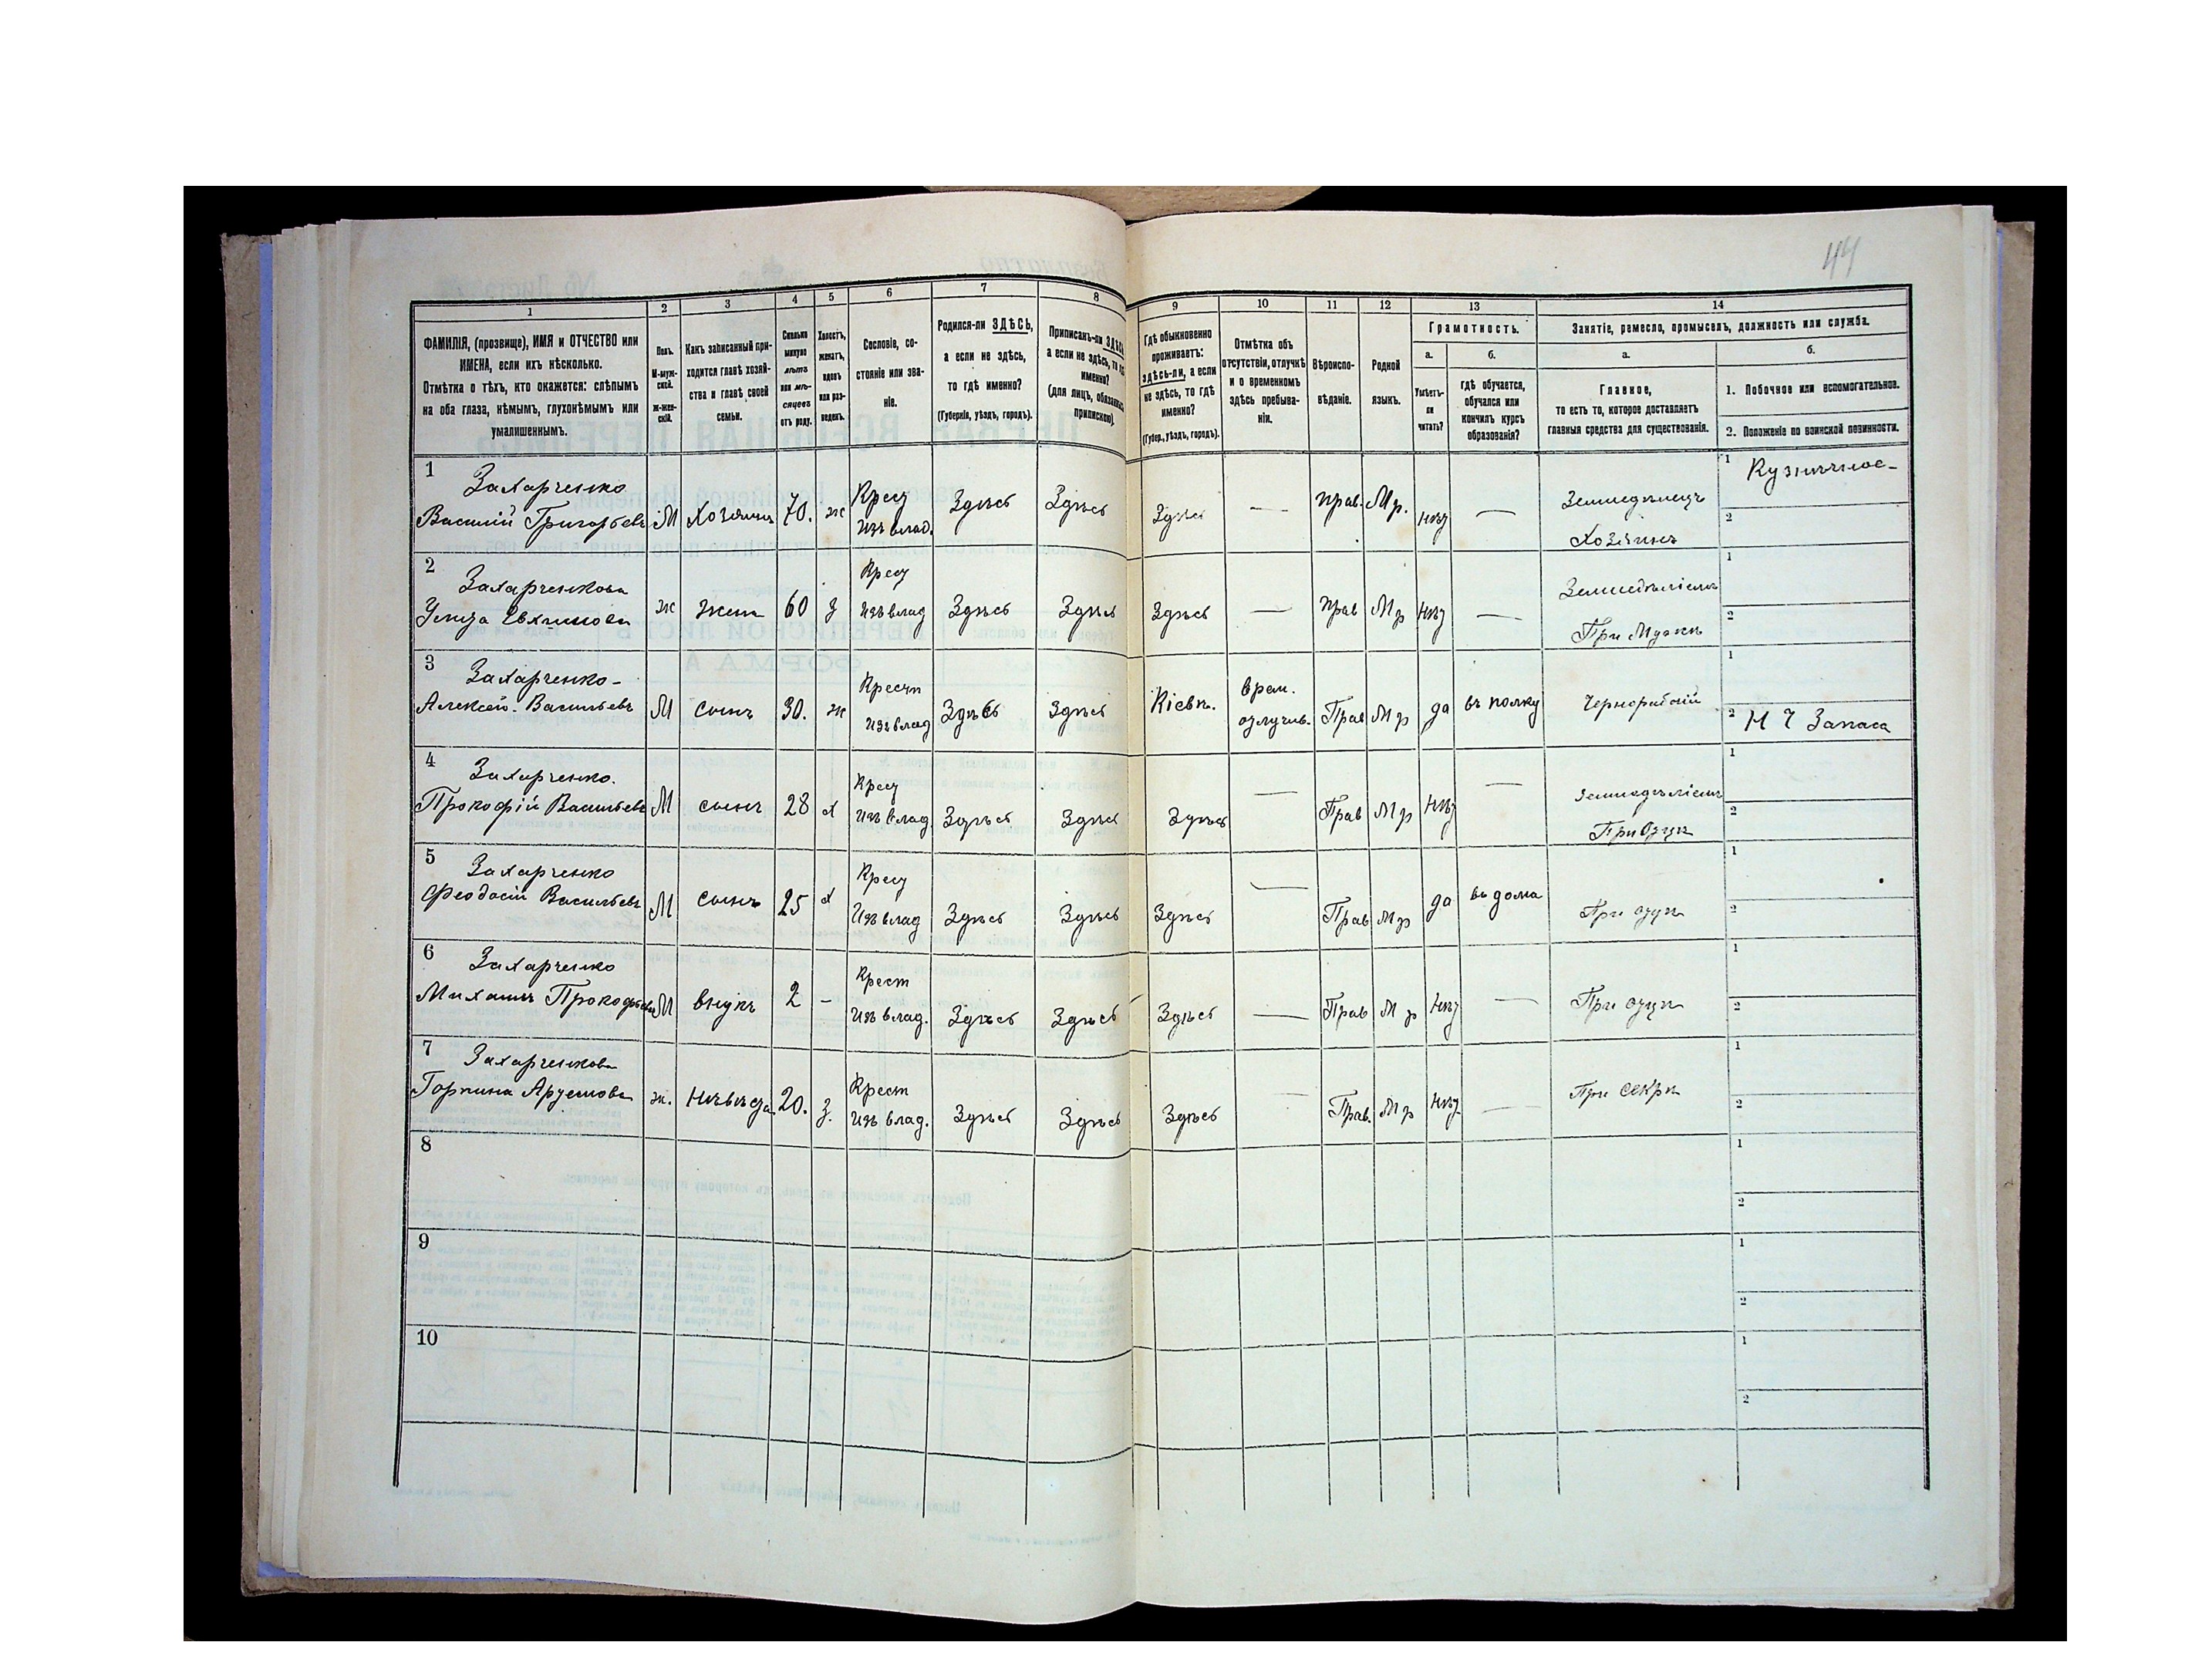 44
1
2
3
4
5
6
7
8
9
10
11
12
13
14
ФАМИЛІЯ, (прозвище), ИМЯ и ОТЧЕСТВО или
ИМЕНА, если ихъ нѣсколько.
Отмѣтка о тѣхъ, кто окажется: слѣпымъ
на оба глаза, нѣмымъ, глухонѣмымъ или
умалишеннымъ.
Полъ.
М-муж-
ской.
ж-жен-
скій.
Какъ записанный при-
ходится главѣ хозяй-
ства и главѣ своей
семьи.
Сколько
минуло
лѣтъ
или мѣ-
сяцевъ
отъ роду.
Холостъ,
женатъ,
вдовъ
или раз-
веденъ.
Сословіе, со-
стояніе или зва-
ніе.
Родился-ли ЗДѢСЬ,
а если не здѣсь,
то гдѣ именно?
(Губернія, уѣздъ, городъ).
Приписанъ-ли ЗДѢСЬ
а если не здѣсь, то гдѣ
именно?
(для лицъ, обязанныхъ
припискою).
Гдѣ обыкновенно
проживаетъ:
здѣсь-ли, а если
не здѣсь, то гдѣ
именно?
(Губер., уѣздъ, городъ).
Отмѣтка объ
отсутствіи, отлучкѣ
и о временномъ
здѣсь пребыва-
ніи.
Вѣроиспо-
вѣданіе.
Родной
языкъ.
Грамотность.
а.
Умѣетъ-
ли
читать?
б.
гдѣ обучается,
обучался или
кончилъ курсъ
образованія?
Занятіе, ремесло, промыселъ, должность или служба.
а.
Главное,
то есть то, которое доставляетъ
главныя средства для существованія.
б.
1. Побочное или вспомогательное.
2. Положеніе по воинской повинности.
1
Захарченко
Василій Григорьевъ
М
Хозяинъ
70.
ж
Крест
изъ влад.
Здѣсь
Здѣсь
Здѣсь
—
прав.
Мр.
нѣт
—
Земледѣлецъ
Хозяинъ
1 Кузнечное-
2
2
Захарченкова
Евхимова
ж
жена
60
з
Крест
изъ влад
Здѣсь
Здѣсь
Здѣсь
—
прав
Мр
нѣт
—
Земледѣліемъ
При Мужѣ
1
2
3
Захарченко-
Алексѣй. Васильевъ
М
сынъ
30.
ж
Крестн
изъ влад
Здѣсь
Здѣсь
Кіевъ.
врем.
отлучив.
Прав
Мр
да
въ полку
Чернорабочій
1
2 Н Ч Запаса
4
Захарченко.
Прокофій Васильевъ
М
сынъ
28
х
Крест
Изъ влад.
Здѣсь
Здѣсь
Здѣсь
—
Прав
Мр
нѣт
—
Земледѣліемъ
При Отцѣ
1
2
5
Захарченко
Феодосій Васильевъ
М
сынъ
25
х
Крест
Изъ влад
Здѣсь
Здѣсь
Здѣсь
—
Прав
Мр
да
въ дома
При отцѣ
1
2
6
Захарченко
Михаилъ Прокофьевъ
М
внукъ
2
-
Крест
Изъ влад.
Здѣсь
Здѣсь
Здѣсь
—
Прав
Мр
нѣт
—
При отцѣ
1
2
7
Захарченкова
Горпина Артемова
ж.
Нивѣста
20.
з.
Крест
Изъ влад.
Здѣсь
Здѣсь
Здѣсь
—
Прав.
Мр
нѣт
—
При Свкрѣ
1
2
8
1
2
9
1
2
10
1
2